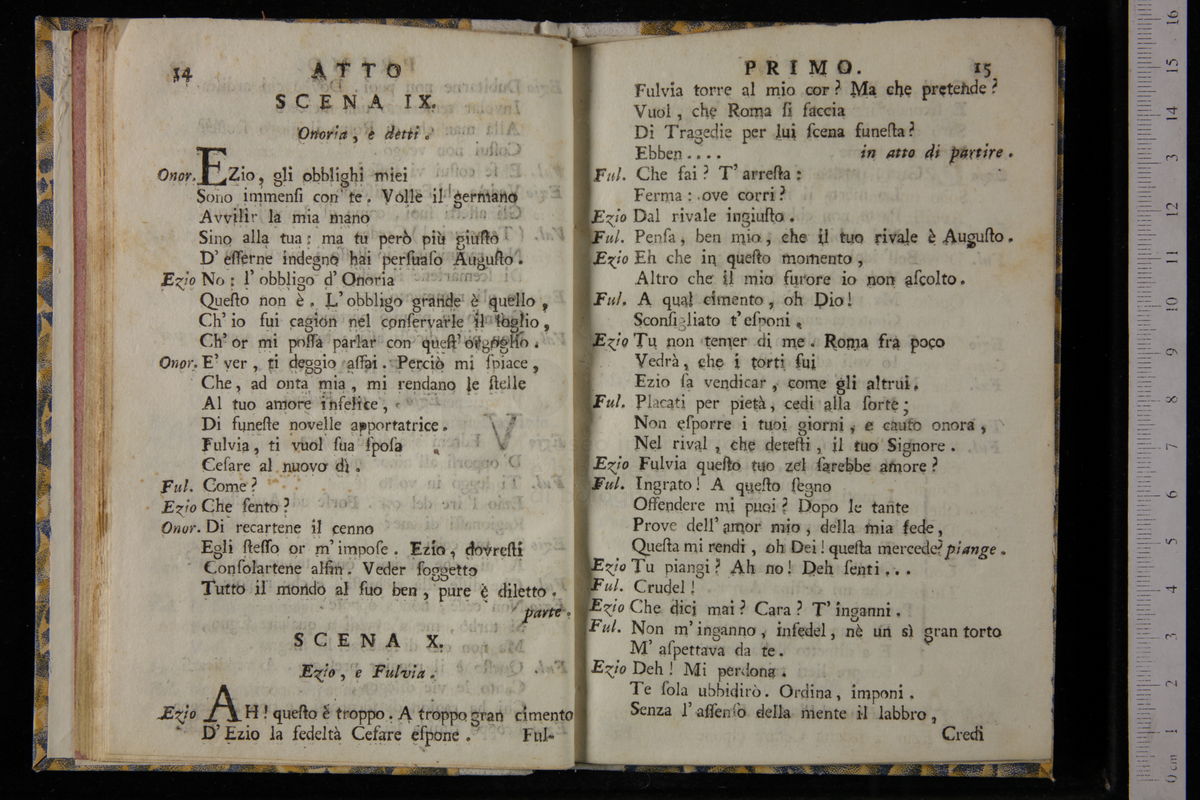 14 ATTO
SCENA IX.
Onoria, e detti.
Onor. EZio, gli obblighi miei
Sono immenſi con te. Volle il germano
Avvilir la mia mano
Sino alla tua; ma tu però più giuſto
D' eſſerne indegno hai perſuaſo Auguſto.
Ezio No; l' obbligo d' Onoria
Queſto non è. L' obbligo grande è quello,
Ch' io fui cagion nel conſervarle il ſoglio,
Ch' or mi poſſa parlar con queſt' orgoglio.
Onor. E' ver, ti deggio aſſai. Perciò mi ſpiace,
Che, ad onta mia, mi rendano le ſtelle
Al tuo amore infelice,
Di funeſte novelle apportatrice.
Fulvia, ti vuol ſua ſpoſa
Ceſare al nuovo dì.
Ful. Come?
Ezio Che ſento?
Onor. Di recartene il cenno
Egli ſteſſo or m' impoſe. Ezio, dovreſti
Conſolartene alfin. Veder ſoggetto
Tutto il mondo al ſuo ben, pure è diletto.
parte.
SCENA X.
Ezio, e Fulvia.
Ezio AH! queſto è troppo. A troppo gran cimento
D' Ezio la fedeltà Ceſare eſpone.
Ful-
PRIMO. 15
Fulvia torre al mio cor? Ma che pretende?
Vuol, che Roma ſi faccia
Di Tragedie per lui ſcena funeſta?
Ebben.... in atto di partire.
Ful. Che fai? T' arreſta:
Ferma: ove corri?
Ezio Dal rivale ingiuſto.
Ful. Penſa, ben mio, che il tuo rivale è Auguſto.
Ezio Eh che in queſto momento,
Altro che il mio furore io non aſcolto.
Ful. A qual cimento, oh Dio!
Sconſigliato t' eſponi.
Ezio Tu non temer di me. Roma fra poco
Vedrà, che i torti ſui
Ezio ſa vendicar, come gli altrui.
Ful. Placati per pietà, cedi alla ſorte;
Non eſporre i tuoi giorni, e cauto onora,
Nel rival, che deteſti, il tuo Signore.
Ezio Fulvia queſto tuo zel ſarebbe amore?
Ful. Ingrato! A queſto ſegno
Offendere mi puoi? Dopo le tante
Prove dell' amor mio, della mia fede,
Queſta mi rendi, oh Dei! queſta mercede? piange.
Ezio Tu piangi? Ah no! Deh ſenti...
Ful. Crudel!
Ezio Che dici mai? Cara? T' inganni.
Ful. Non m' inganno, infedel, nè un sì gran torto
M' aſpettava da te.
Ezio Deh! Mi perdona.
Te ſola ubbidirò. Ordina, imponi.
Senza l' aſſenſo della mente il labbro,
Credi